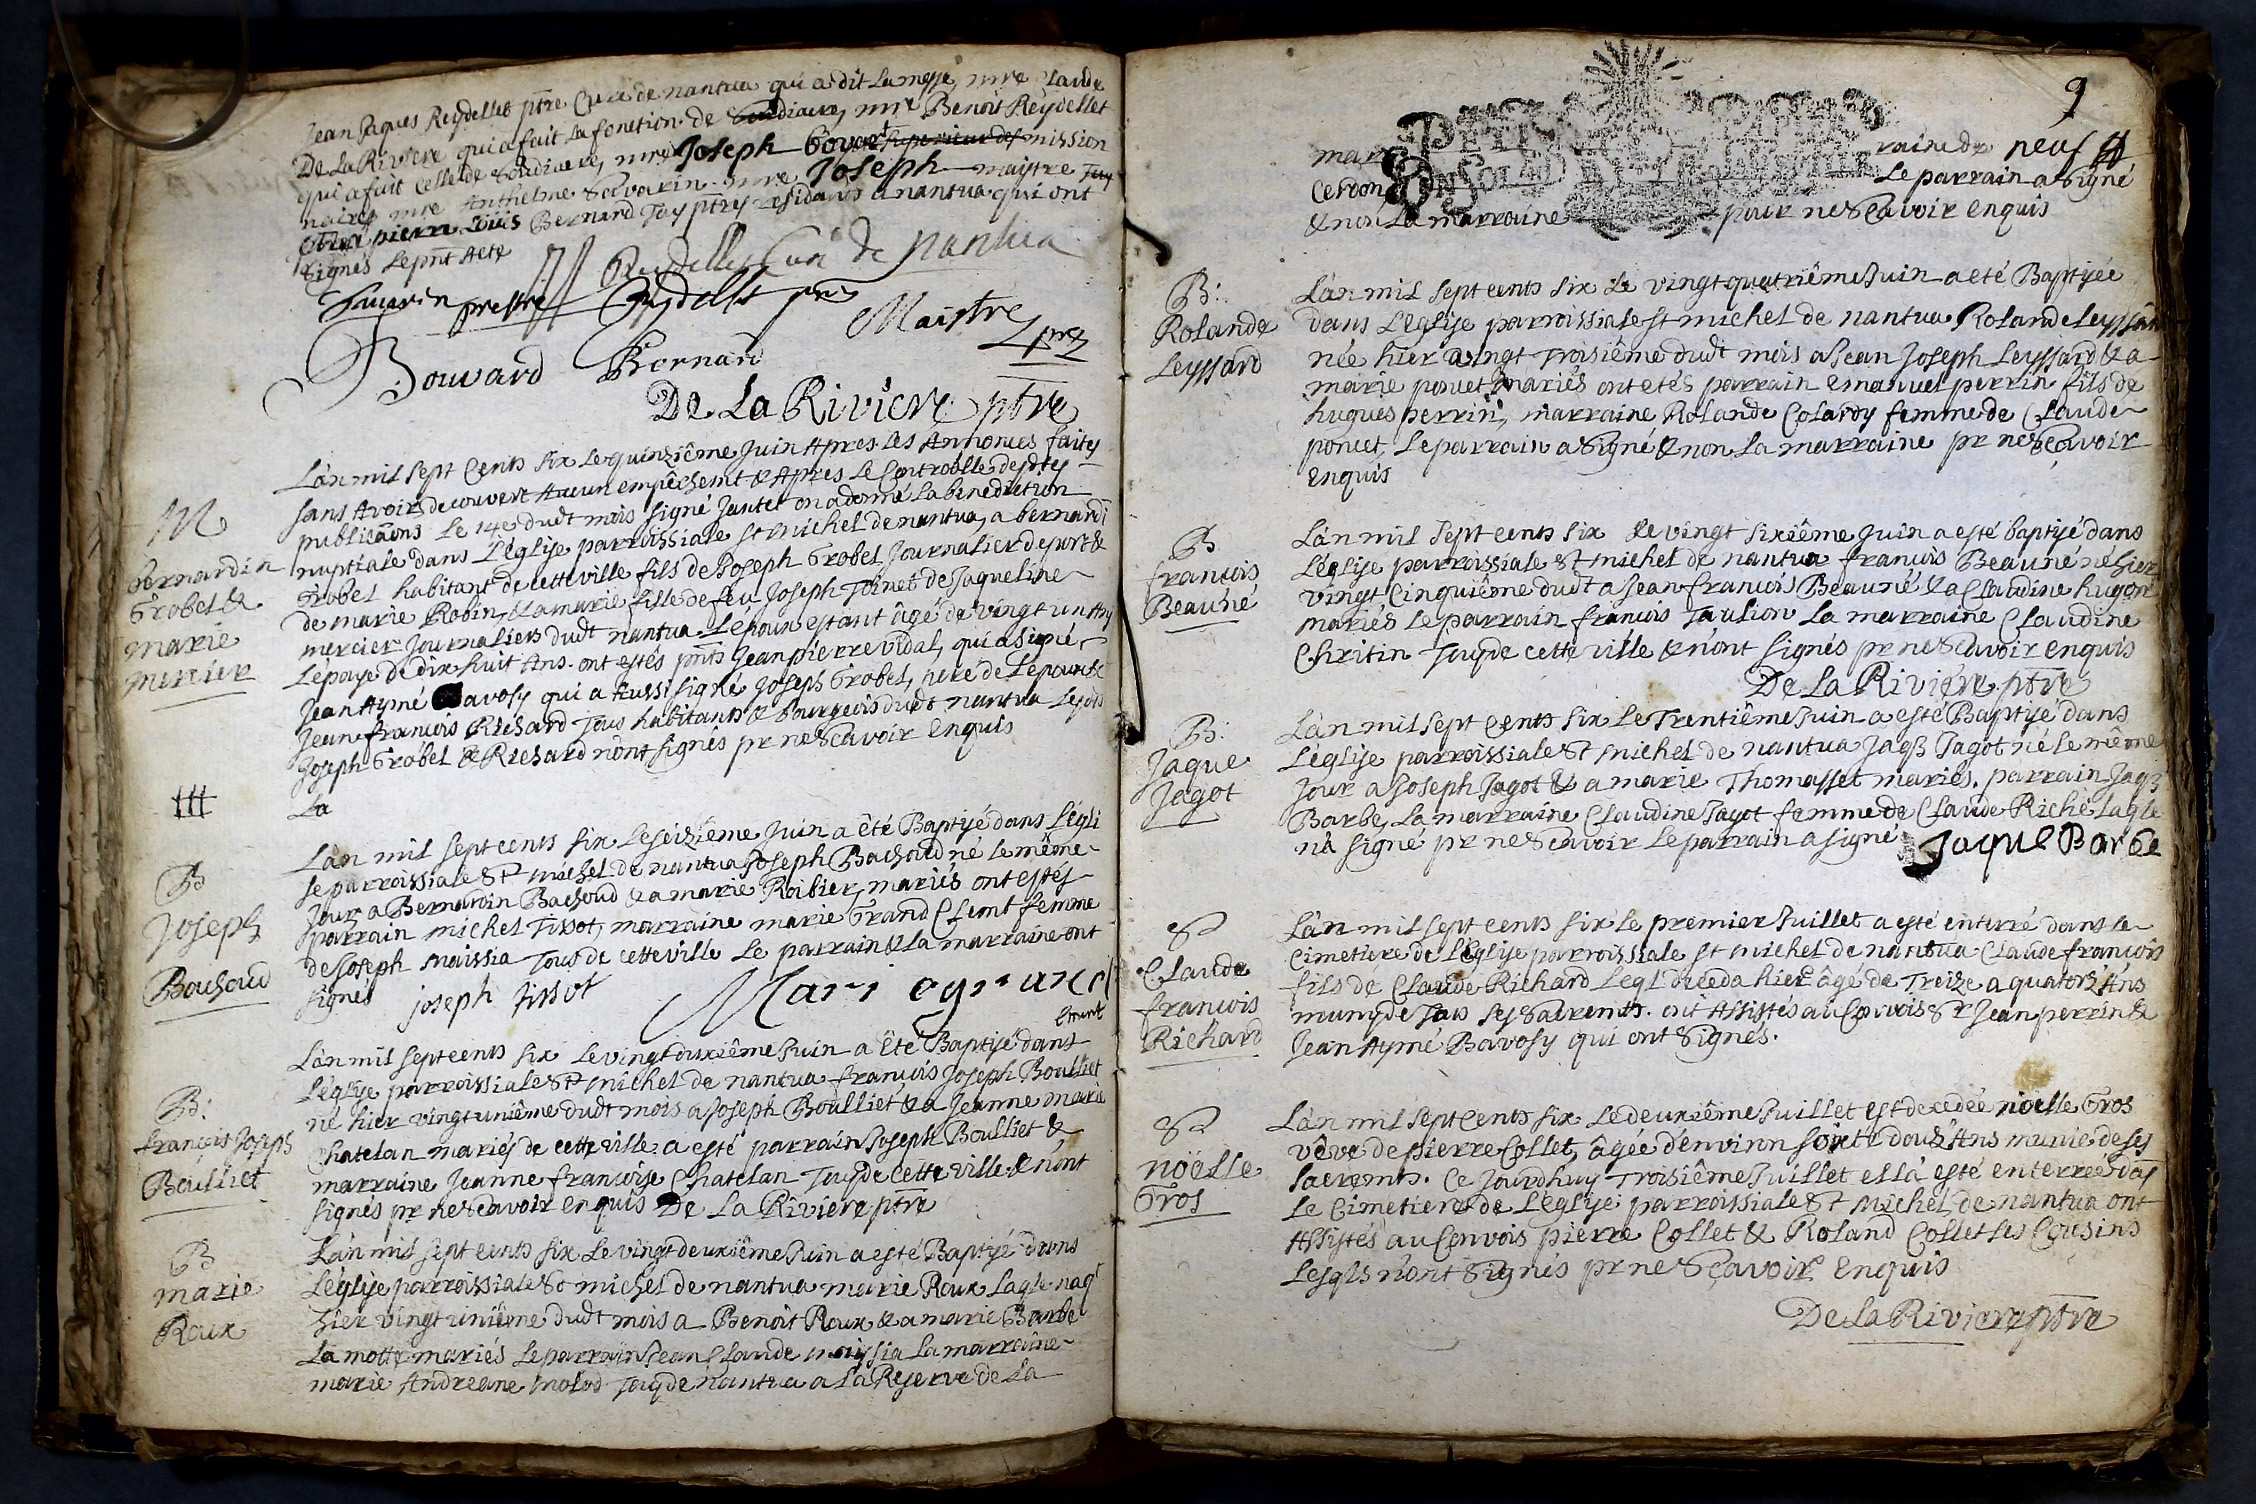 Jean Jaques Reydellet ptre Curé de nantua qui a dit La messe, mre Claude
De La Riviere qui a fait La fonction de Soudiacre, mre Benoit Reydellet
qui a fait Celle de Soudiacre, mre Joseph Bovart Superieur des mission
naires mre Anthelme Savarin mre Joseph maistre Tous
pierre Louis Bernard Tous ptres residants a nantua qui ont
signés Le pnt Acte
Reydellet Curé de nantua
Savarin prestre Reydellet ptre
Maistre ptre
Bouvard Bernard
De La Riviere ptre
M
bernardin
Grobel &
marie
mercier
L'an mil sept Cents six Le quinziême Juin Apres Les Annonces faites
sans Avoir decouvert Aucun empêchemt & Apres Le Controolle desdtes
publicaons Le 14e dudt mois signé Jantet on a donné La benediction
nuptiale dans L'église parroissiale st michel de nantua, a bernardi
Grobel habitant de cette ville fils de Joseph Grobel Journalier de port &
de marie Robin, & a marie fille de feu Joseph Toinet de Jaqueline
mercier Journaliers dudt nantua L'epoux estant âgé de vingt un Ans
L'épouse de dix huit Ans. ont estés pnts Jean pierre Vidal, qui a signé,
Jean Aymé Bavosy qui a Aussi signé Joseph Grobel, pere de L'epoux &
Jean francois Richard Tous habitants & bourgeois dudt nantua Lesdts
Joseph Grobel & Richard n'ont signés pr ne Scavoir Enquis
La
B
Joseph
Bachoud
L'an mil sept cents six Le seiziême Juin a êté Baptisé dans L'égli
se parroissiale St michel de nantua Joseph Bachoud né Le même
Jour a Bernardin Bachoud & a marie Roibier, mariés ont estés
parrain michel Tissot, marraine marie Grand Clemt femme
de Joseph maissia Tous de cette ville Le parrain & La marraine ont
signés joseph tissot Mari e grand
Clemt
B:
francois Joseph
Boulliet
L'an mil sept cents six Le vingt duxiême Juin a Êté Baptisé dans
L'église parroissiale St michel de nantua francois Joseph Boulliet
né hier vingt uniême dudt mois a Joseph Boulliet & a Jeanne marie
Chatelan mariés de cette ville a esté parrain Joseph Boulliet &
marraine Jeanne francoise Chatelan Tous de cette ville & n'ont
signés pr ne Scavoir enquis De La Riviere ptre
B
marie
Roux
L'an mil sept cents six Le vingt deuxiême Juin a esté Baptisé dans
L'église parroissiale St michel de nantua marie Roux Laqle naqt
hier vingt uniême dudt mois a Benoit Roux & a marie Barbe
La motte mariés Le parrain Jean Claude maissia La marraine
marie Andreane molod Tous de nantua a La Reserve de La
9
mar raine de neuf
Cerdon Le parrain a Signé
& non La marraine pour ne Scavoir enquis
B:
Rolande
Leyssard
L'an mil sept cents six Le vingt quatriême Juin a eté Baptisée
dans L'église parroissiale st michel de nantua Rolande Leyssard
née hier vingt Troisiême dudt mois a Jean Joseph Leyssard & a
marie poncet mariés ont etés parrain emanuel perrin fils de
hugues perrin, marraine Rolande Colardy femme de Claude
poncet, Le parrain a Signé & non La marraine pr ne Scavoir
Enquis
B
francois
Beauné
L'an mil sept cents six Le vingt sixiême Juin a esté baptisé dans
L'église parroissiale St michel de nantua francois Beauné né hier
vingt Cinquiême dudt a Jean francois Beauné & a Claudine hugon
mariés Le parrain francois Taulion La marraine Claudine
Chritin Tous de cette ville & n'ont signés pr ne Scavoir enquis
De La Riviere ptre
B:
Jaque
Jagot
L'an mil sept cents six Le Trentiême Juin a esté Baptisé dans
L'église parroissiale St michel de nantua Jaqs Jagot né Le même
jour a Joseph Jagot & a marie Thomasset mariés. parrain Jaqs
Barbe, La marraine Claudine Jagot femme de Claude Riche Laqle
n'a signé pr ne Scavoir Le parrain a signé Jaque Barbe
S
Claude
francois
Richard
L'an mil sept cents six Le premier Juillet a esté enterré dans Le
Cimetiere de L'Eglise parroissiale st michel de nantua Claude francois
fils de Claude Richard Leql deceda hier âgé de Treize a quatorze Ans
muny de Tous ses Sacremts. ont Assistés au Convois Sr Jean perrin &
Jean Aymé Bavosy qui ont Signés.
S
noëlle
Gros
L'an mil sept Cents six Le deuxiême Juillet est decedée noëlle Gros
vêve de pierre Collet, âgée d'environ soixte douze Ans munie de ses
sacremts. Ce Jourdhuy Troisiême Juillet ell'a esté enterrée dans
Le Cimetiere de L'église parroissiale St Michel de nantua ont
Assistés au Convois pierre Collet & Roland Collet ses Cousins
Lesqls n'ont Signés pr ne Sçavoir Enquis
De La Riviere ptre